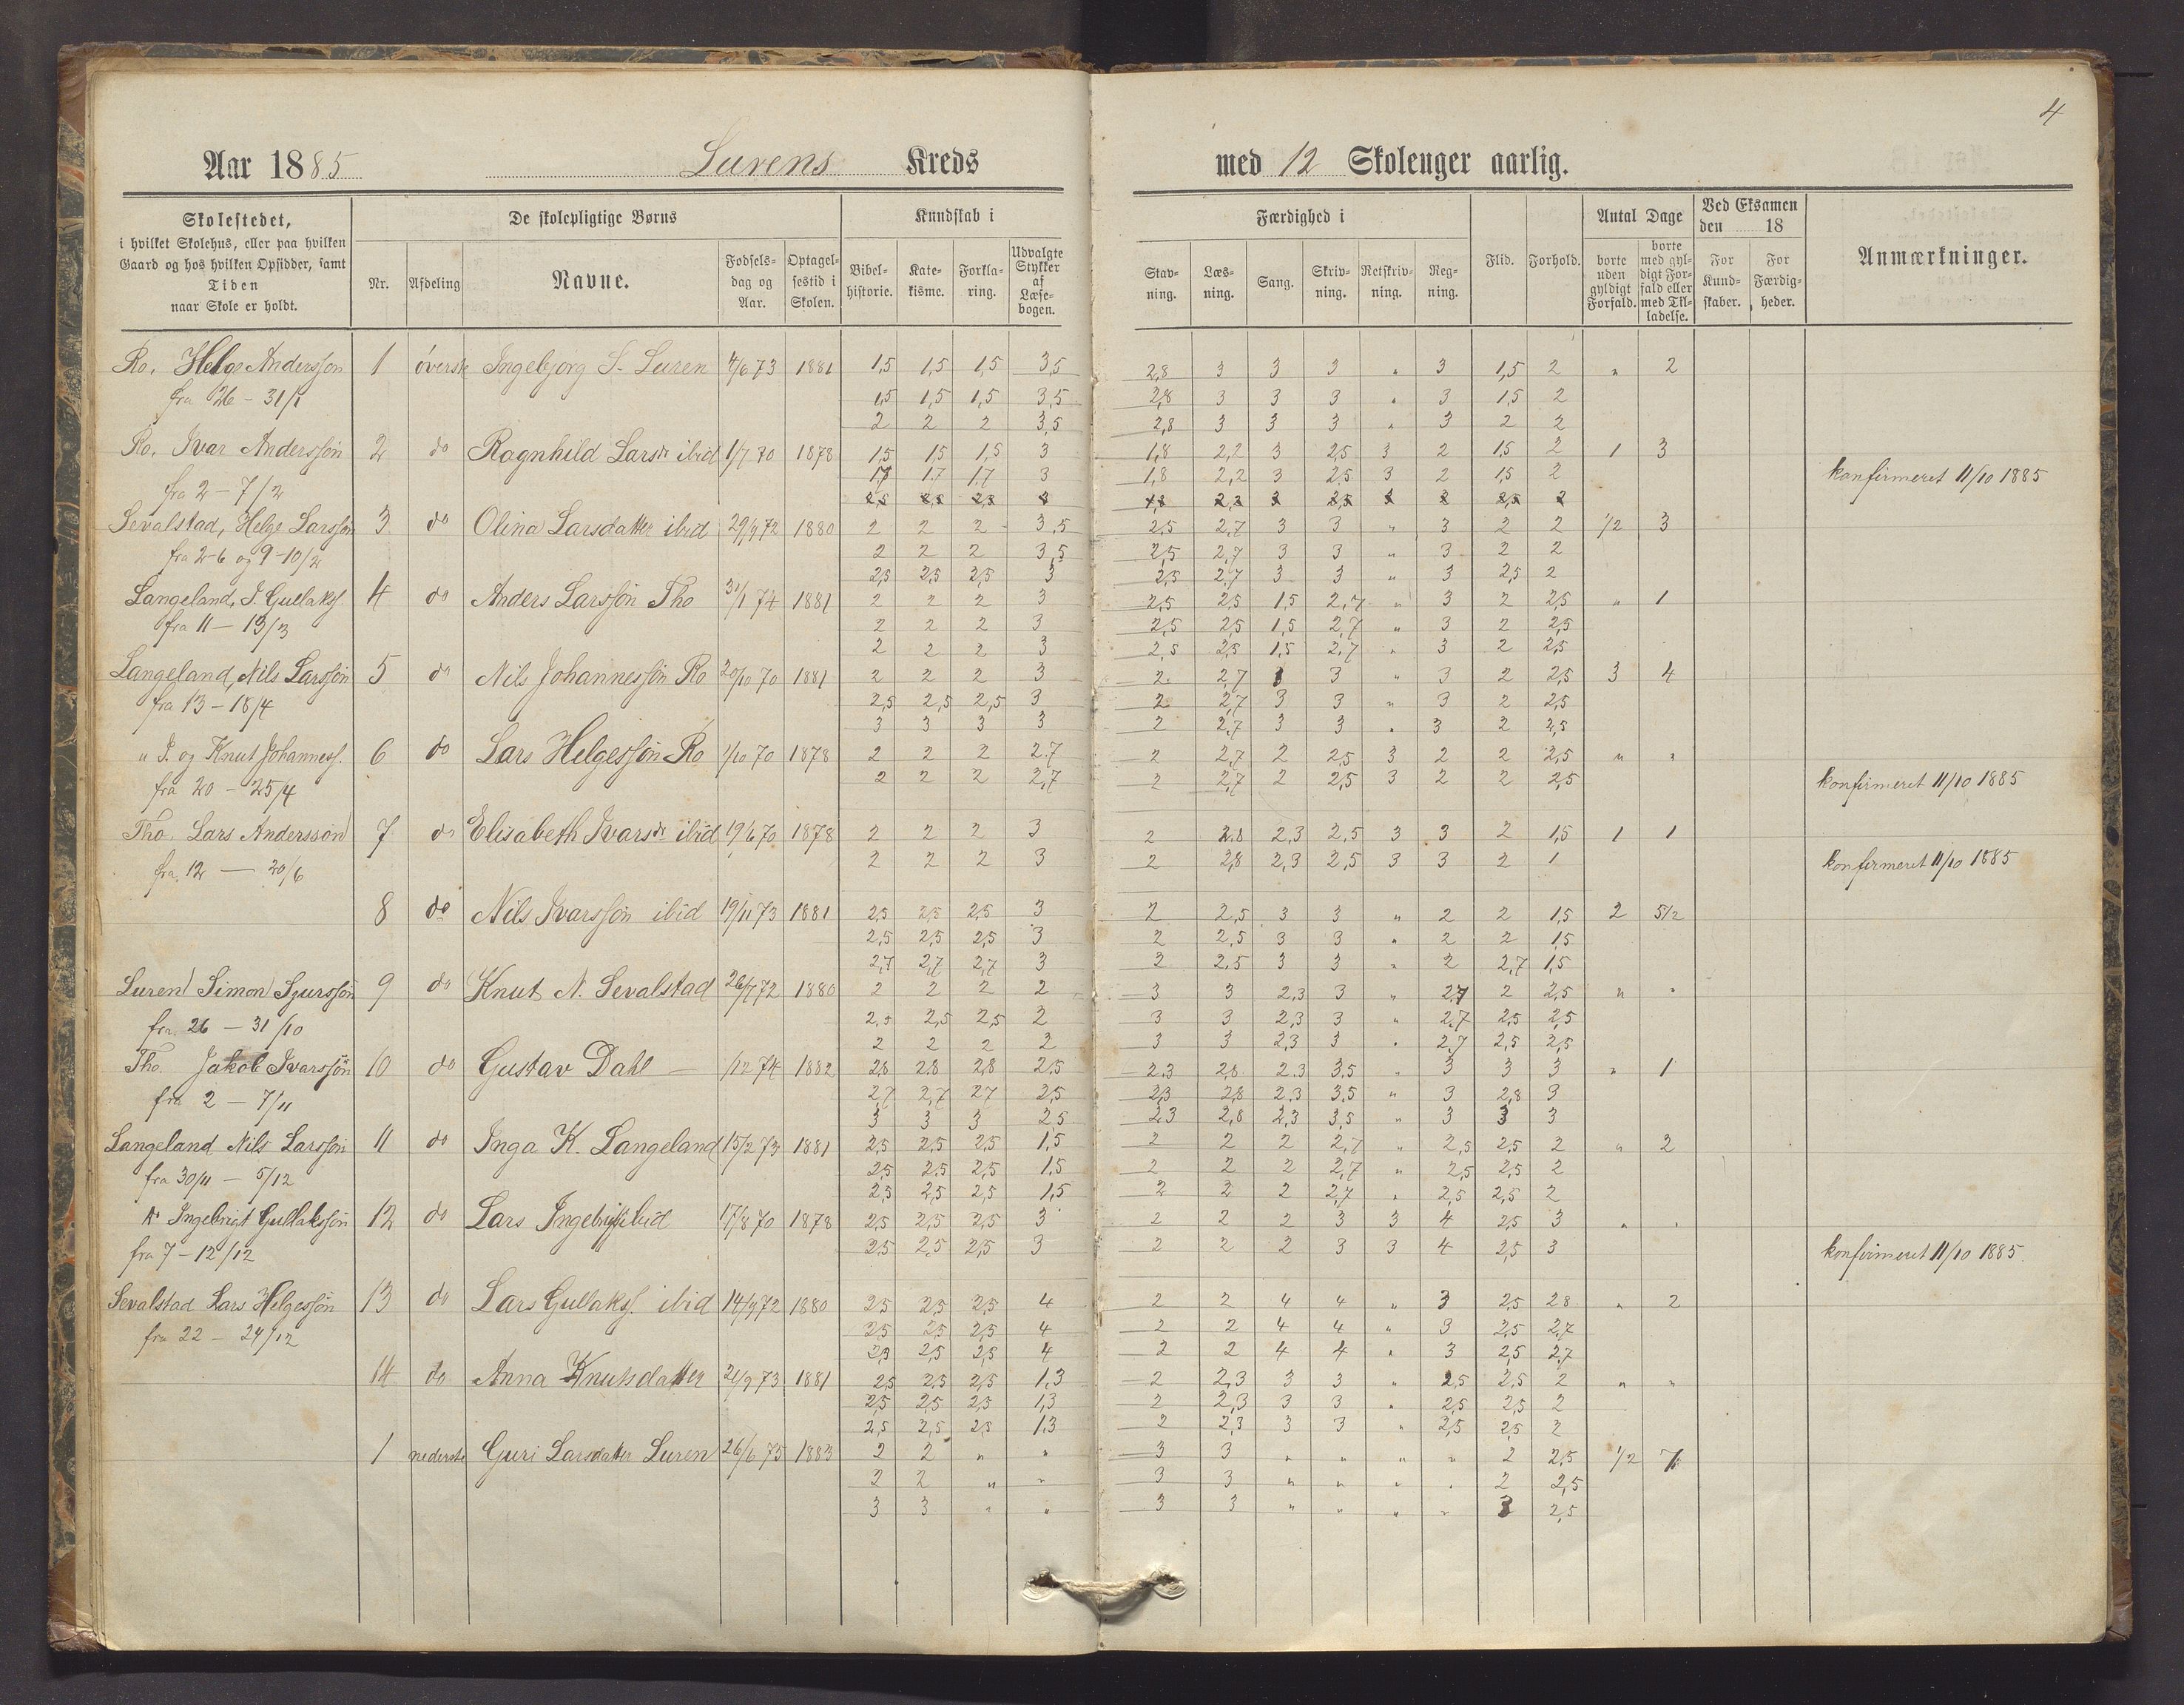 4
Aar 1885 Lurens Kreds med 12 Skolenger aarlig.
Skolestedet,
i hvilket Skolehus, eller paa hvilken
Gaard og hos hvilken Opsidder, samt
Tiden
naar Skole er holdt.
De skolepligtige Børns
Nr. Afdeling Navne. Fødsels-dag og Aar. Optagel-sestid i Skolen.
Kundskab i
Bibel-historie. Kate-kisme. Forkla-ring. Udvalgte Stykker af Læse-bogen.
Færdighed i
Stav-ning. Læs-ning. Sang. Skriv-ning. Retskriv-ning. Reg-ning.
Flid. Forhold.
Antal Dage
borte uden gyldigt Forfald. borte med gyl-digt For-fald eller med Til-ladelse.
Ved Eksamen
den 18
For Kund-skaber. For Færdig-heder.
Anmærkninger.
Ro, Helge Anderssøn 1 överste Ingebjørg S. Luren 4/6 73 1881 1,5 1,5 1,5 3,5 2,8 3 3 3 " 3 1,5 2 " 2
fra 26 - 31/1 1,5 1,5 1,5 3,5 2,8 3 3 3 " 3 1,5 2
2 2 2 3,5 2,8 3 3 3 " 3 2 2
Ro, Ivar Anderssøn 2 do Ragnhild Larsdr ibid 1/7 70 1878 1,5 1,5 1,5 3 1,8 2,2 3 2,5 3 2 1,5 2 1 3
1,7 1,7 1,7 3 1,8 2,2 3 2,5 3 2 1,5 2 konfirmeret 11/10 1885
fra 2 - 7/2
Sevalstad, Helge Larssøn 3 do Olina Larsdatter ibid 29/9 72 1880 2 2 2 3,5 2,5 2,7 3 3 " 3 2 2 1/2 3
fra 2-6 og 9-10/2 2 2 2 3,5 2,5 2,7 3 3 " 3 2 2
2,5 2,5 2,5 3 2,5 2,7 3 3 " 3 2,5 2
Langeland, I. Gullakss. 4 do Anders Larssøn Tho 31/1 74 1881 2 2 2 3 2,5 2,5 1,5 2,7 " 3 2 2,5 " 1
fra 11 - 13/3 2 2 2 3 2,5 2,5 1,5 2,7 " 3 2 2,5
2 2 2 3 2,5 2,5 1,5 2,7 " 3 2 2,5
Langeland, Nils Larssøn 5 do Nils Johannessøn Ro 20/10 70 1881 2 2 2 3 2 2,7 3 3 " 3 2 2,5 3 4
fra 13 - 18/4 2,5 2,5 2,5 3 2 2,7 3 3 " 3 2 2,5
3 3 3 3 2 2,7 3 3 " 3 2 2,5
" J. og Knut Johanness. 6 do Lars Helgessøn Ro 1/10 70 1878 2 2 2 2,7 2 2,7 2 2,5 3 2 2 2,5 " "
fra 20 - 25/4 2 2 2 2,7 2 2,7 2 2,5 3 2 2 2,5 konfirmeret 11/10 1885
Tho. Lars Anderssøn 7 do Elisabeth Ivarsdr ibid 19/6 70 1878 2 2 2 3 2 2,8 2,3 2,5 3 3 2 1,5 1 1
fra 12 — 20/6 2 2 2 3 2 2,8 2,3 2,5 3 3 2 1 konfirmeret 11/10 1885
8 do Nils Ivarssøn ibid 19/11 73 1881 2,5 2,5 2,5 3 2 2,5 3 3 " 2 2 1,5 2 5 1/2
2,5 2,5 2,5 3 2 2,5 3 3 " 2 2 1,5
2,7 2,7 2,7 3 2 2,5 3 3 " 2 2,7 1,5
Luren Simon Sjurssøn 9 do Knut N. Sevalstad 26/7 72 1880 2 2 2 2 3 3 2,3 3 " 2,7 2 2,5 " "
fra 26 - 31/10 2,5 2,5 2,5 2 3 3 2,3 3 " 2,7 2,5 2,5
2 2 2 2 3 3 2,3 3 " 2,7 2,5 2,5
Tho. Jakob Ivarssøn 10 do Gustav Dahl — /12 74 1882 2,8 2,8 2,8 2,5 2,3 2,8 2,3 3,5 " 3 3 3 " 1
fra 2 - 7/11 2,7 2,7 2,7 2,5 2,3 2,8 2,3 3,5 " 3 2,8 3
3 3 3 2,5 2,3 2,8 2,3 3,5 " 3 3 3
Langeland Nils Larssøn 11 do Inga K. Langeland 15/2 73 1881 2,5 2,5 2,5 1,5 2 2 2 2,7 " 2,5 2,5 2 " 2
fra 30/11 - 5/12 2,5 2,5 2,5 1,5 2 2 2 2,7 " 2,5 2,5 2
2,5 2,5 2,5 1,5 2 2 2 2,7 " 2,5 2,5 2
Ingebrigt Gullakssøn 12 do Lars ibid 17/8 70 1878 2,5 2,5 2,5 3 2 2 2 3 3 4 2,5 3 " "
fra 7 - 12/12 2,5 2,5 2,5 3 2 2 2 3 3 4 2,5 3 konfirmeret 11/10 1885
Sevalstad Lars Helgessøn 13 do Lars Gullakss. ibid 14/9 72 1880 2,5 2,5 2,5 4 2 2 4 4 " 3 2,5 2,8 " 2
fra 22 - 24/12 2,5 2,5 2,5 4 2 2 4 4 " 3 2,5 2,7
2,5 2,5 2,5 4 2 2 4 4 " 3 2,5 2,7
14 do Anna Knutsdatter 21/9 73 1881 2,5 2,5 2,5 1,3 2 2,3 3 3 " 2,5 2,5 2 " "
2,5 2,5 2,5 1,3 2 2,3 3 3 " 2,5 2,5 2
2,5 2,5 2,5 1,3 2 2,3 3 3 " 2,5 2,5 2
1 nederste Guri Larsdatter Luren 26/6 75 1883 2 2 " " 3 3 " " " " 2 2,5 1/2 7
2 2 " " 3 3 " " " " 2 2,5
3 3 " " 3 3 " " " " 3 2,5